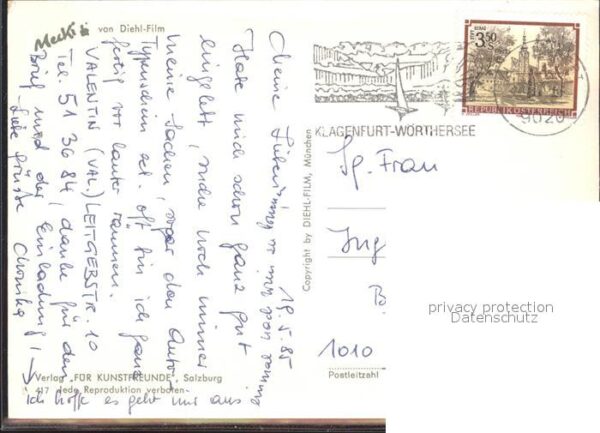 Mecki
von Diehl-Film
3.50
REPUBLIK ÖSTERREICH
9020
KLAGENFURT-WÖRTHERSEE
19.5.85
Meine
Habe mich schon ganz gut
eingelebt, suche noch immer
meine Sachen, sogar den Auto
Typenschein etc. oft bin ich ganz
fertig vor lauter räumen.
VALENTIN (VAL.) LEITGEBSTR. 10
Tel. 51 36 84, danke für den
Brief und der Einladung!
Liebe Grüße
Ich hoffe es geht uns aus
Copyright by DIEHL-FILM, München
Sp. Frau
Ing
B
1010
Postleitzahl
privacy protection
Datenschutz
Verlag „FÜR KUNSTFREUNDE", Salzburg
417 Jede Reproduktion verboten